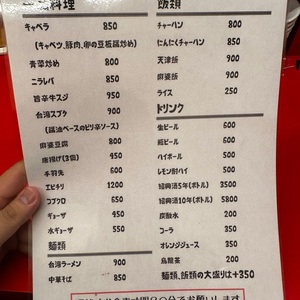 料理
キャベラ 850
(キャベツ、豚肉、卵の豆板醤炒め)
青菜炒め 800
ニラレバ 850
旨辛牛スジ 950
台湾スブタ 900
(醤油ベースのピリ辛ソース)
麻婆豆腐 800
唐揚げ(3個) 450
手羽先 600
エビチリ 1200
コブクロ 650
ギョーザ 450
水ギョーザ 550
麺類
台湾ラーメン 900
中華そば 850
飯類
チャーハン 800
にんにくチャーハン 850
天津飯 900
麻婆飯 900
ライス 250
ドリンク
生ビール 600
瓶ビール 600
ハイボール 500
レモン酎ハイ 500
紹興酒5年(ボトル) 3500
紹興酒10年(ボトル) 5800
炭酸水 200
コーラ 350
オレンジジュース 350
烏龍茶 200
麺類、飯類の大盛りは+350